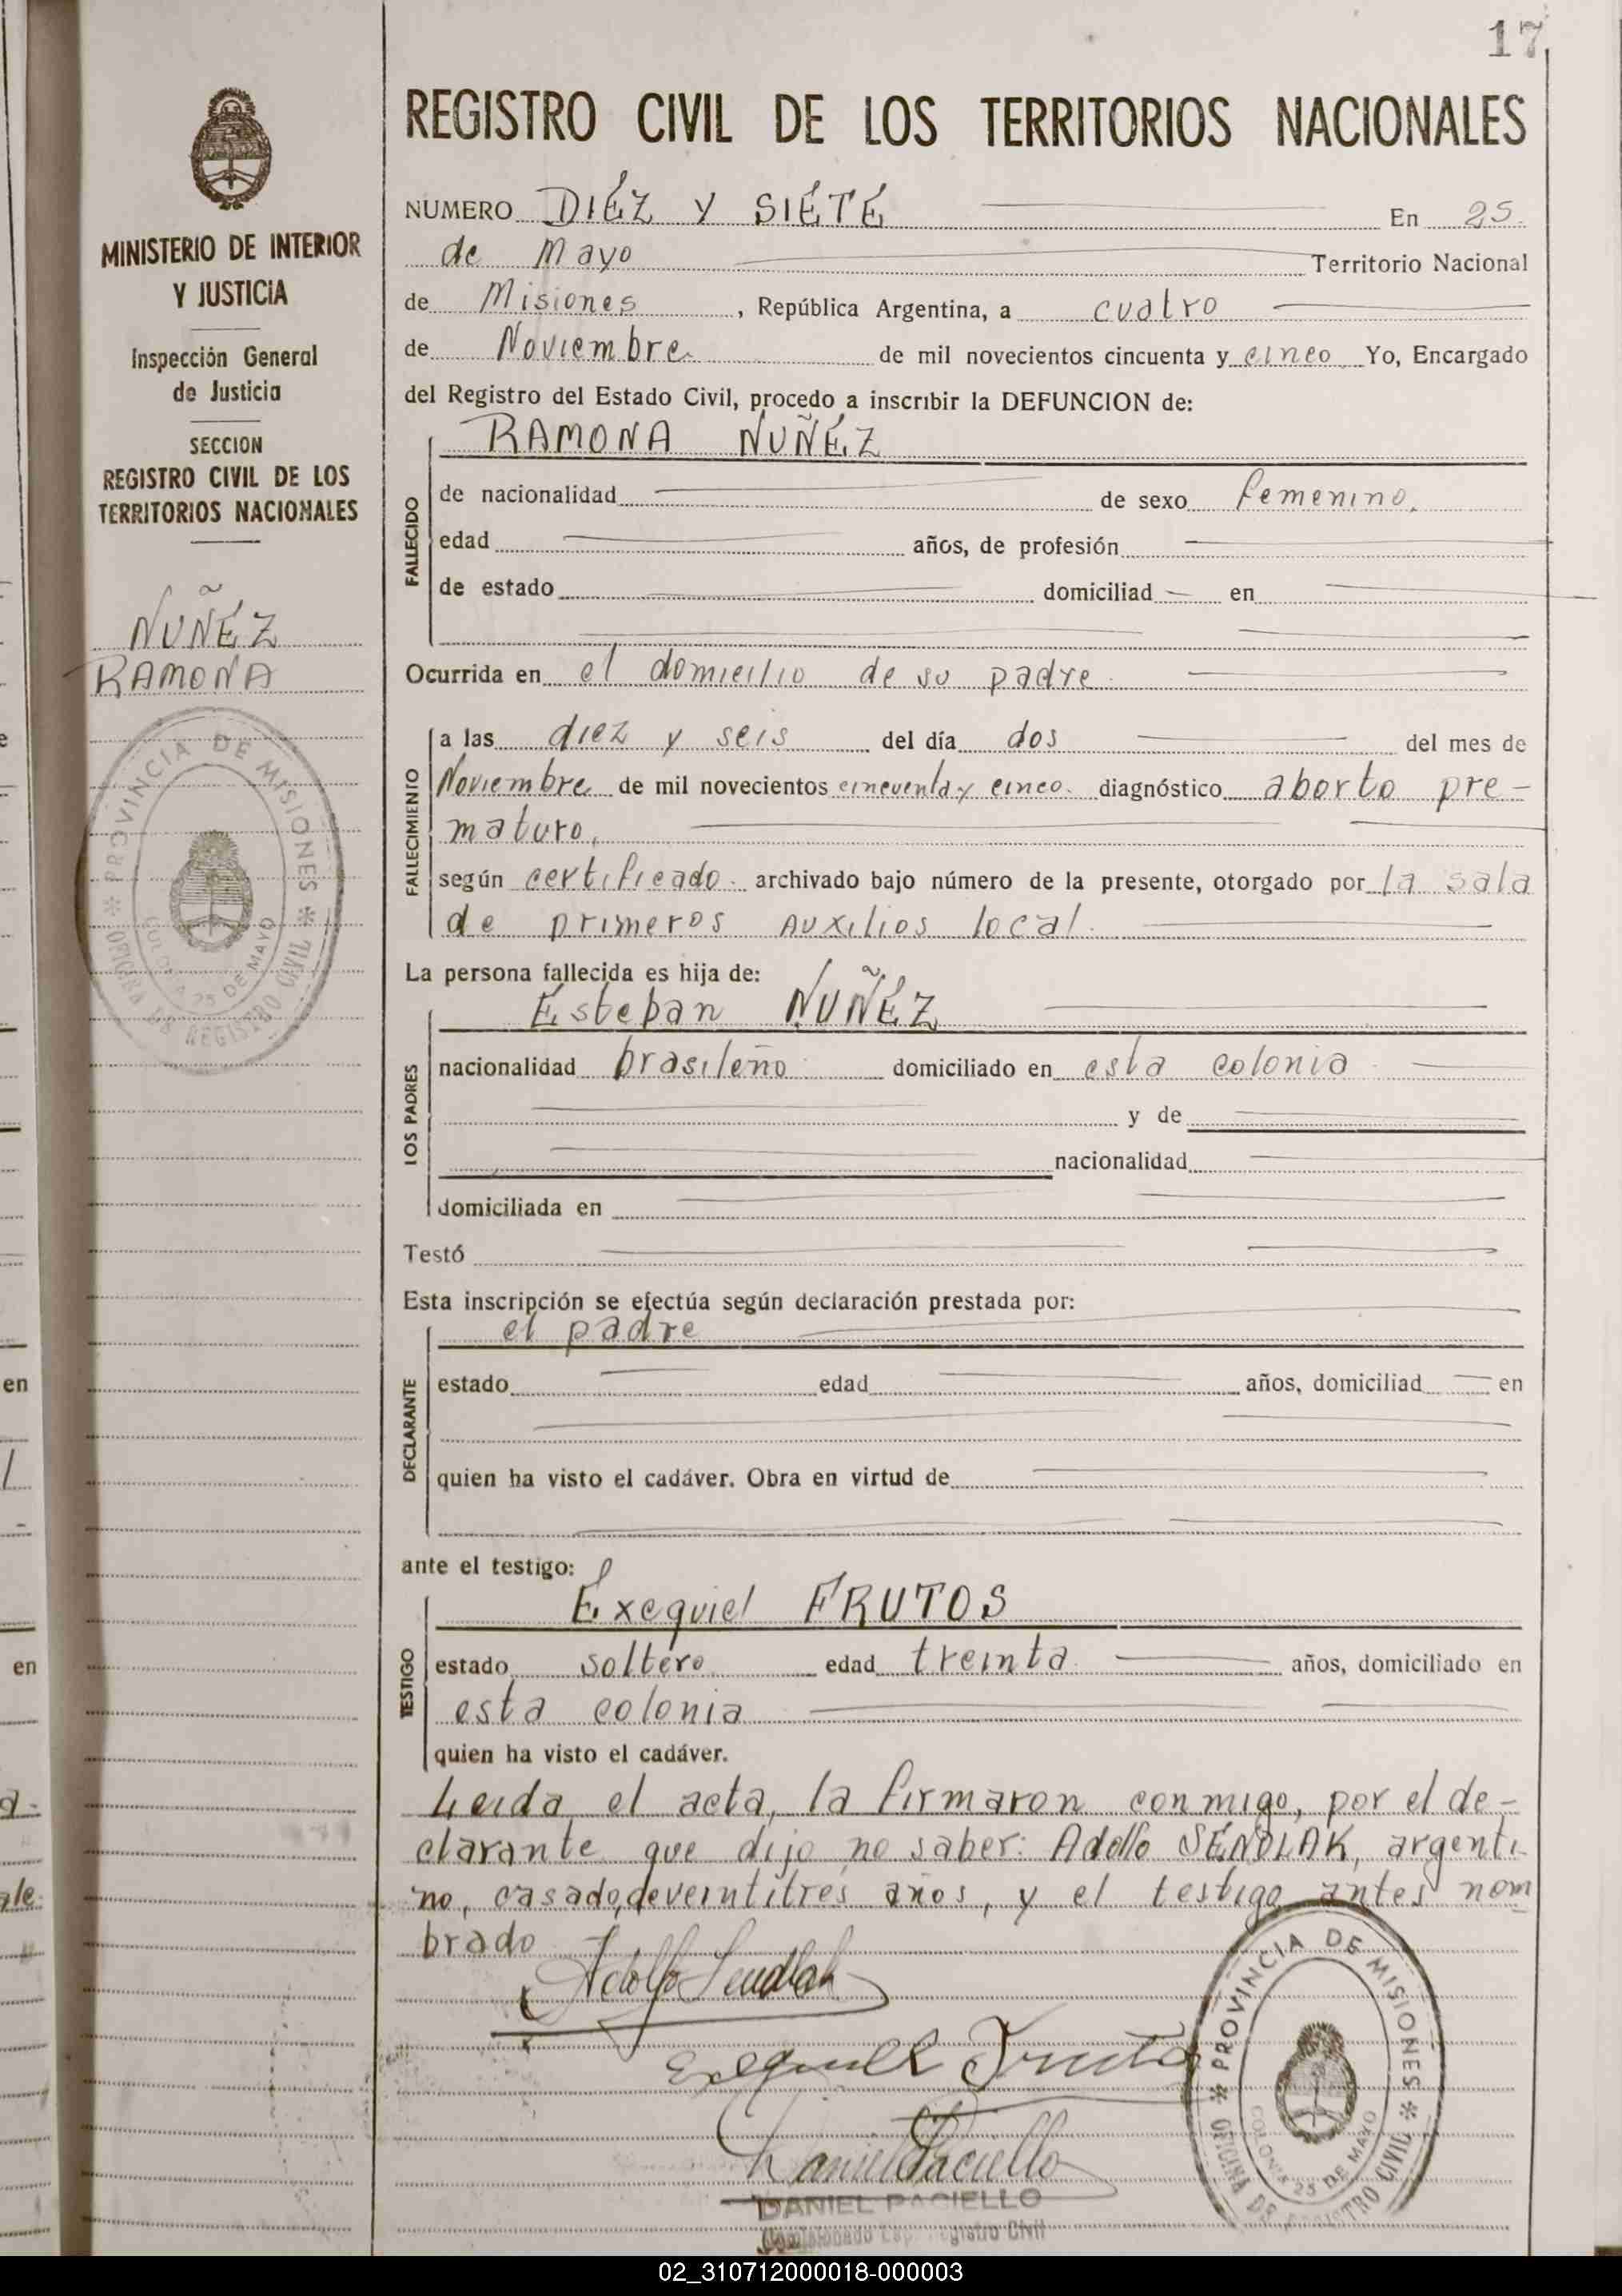 17
REGISTRO CIVIL DE LOS TERRITORIOS NACIONALES
MINISTERIO DE INTERIOR
Y JUSTICIA
Inspección General
de Justicia
SECCION
REGISTRO CIVIL DE LOS
TERRITORIOS NACIONALES
NUÑEZ
RAMONA
PROVINCIA DE MISIONES
OFICINA DE REGISTRO CIVIL
COLONIA 25 DE MAYO
NUMERO DIEZ Y SIETE En 25
de Mayo Territorio Nacional
de Misiones, República Argentina, a cuatro
de Noviembre de mil novecientos cincuenta y cinco Yo, Encargado
del Registro del Estado Civil, procedo a inscribir la DEFUNCION de:
RAMONA NUÑEZ
FALLECIDO
de nacionalidad de sexo femenino,
edad años, de profesión
de estado domiciliad en
Ocurrida en el domicilio de su padre
FALLECIMIENTO
a las diez y seis del día dos del mes de
Noviembre de mil novecientos cincuenta y cinco. diagnóstico aborto pre-
maturo,
según certificado. archivado bajo número de la presente, otorgado por la sala
de primeros Auxilios local.
La persona fallecida es hija de:
Esteban NUÑEZ
LOS PADRES
nacionalidad brasileño domiciliado en esta colonia
y de
nacionalidad
domiciliada en
Testó
Esta inscripción se efectúa según declaración prestada por:
el padre
DECLARANTE
estado edad años, domiciliad en
quien ha visto el cadáver. Obra en virtud de
ante el testigo:
Exequiel FRUTOS
TESTIGO
estado soltero edad treinta años, domiciliado en
esta colonia
quien ha visto el cadáver.
Leida el acta, la firmaron conmigo, por el de-
clarante que dijo no saber: Adolfo SENDLAK, argenti-
no, casado, de veintitres años, y el testigo antes nom
brado
Adolfo Sendlak
Exequiel Frutos
Daniel Paciello
DANIEL PACIELLO
Registro Civil
PROVINCIA DE MISIONES
OFICINA DE REGISTRO CIVIL
COLONIA 25 DE MAYO
02_310712000018-000003